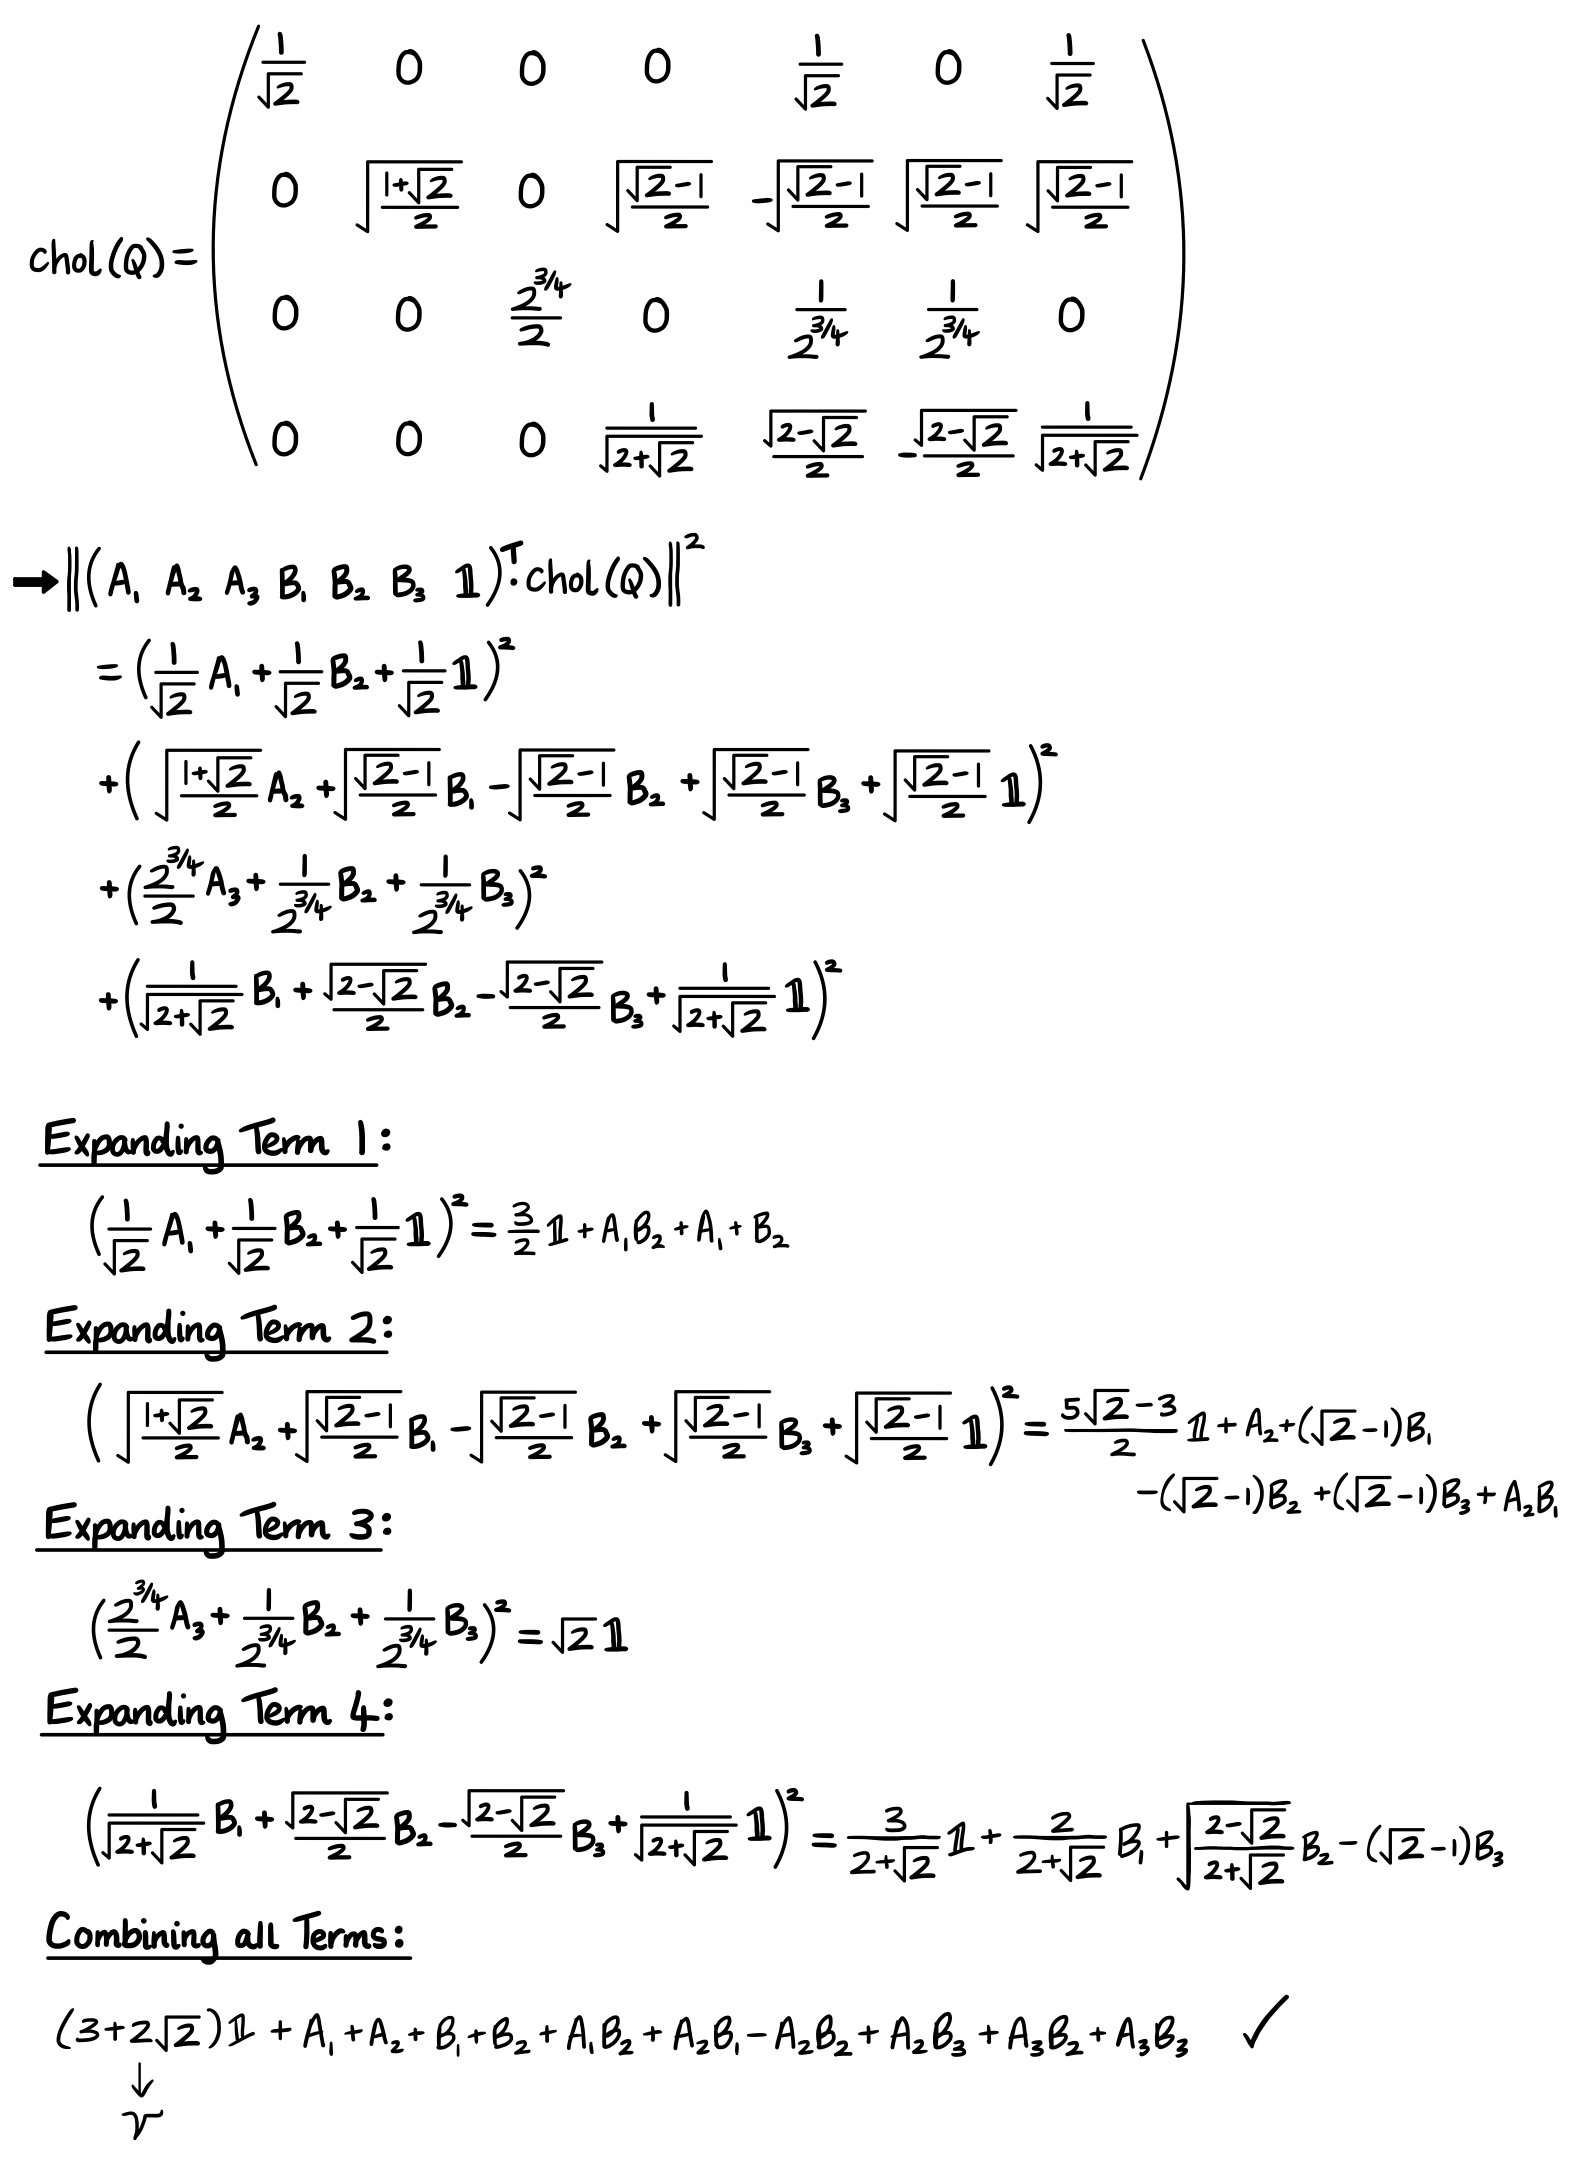 1/√2 0 0 0 1/√2 0 1/√2
0 √((1+√2)/2) 0 √((√2-1)/2) -√((√2-1)/2) √((√2-1)/2) √((√2-1)/2)
chol(Q)=
0 0 2^{3/4}/2 0 1/2^{3/4} 1/2^{3/4} 0
0 0 0 1/√(2+√2) √(2-√2)/2 -√(2-√2)/2 1/√(2+√2)
➡ ‖(A₁ A₂ A₃ B₁ B₂ B₃ 𝟙)ᵀ·chol(Q)‖²
= (1/√2 A₁ + 1/√2 B₂ + 1/√2 𝟙)²
+ (√((1+√2)/2) A₂ + √((√2-1)/2) B₁ - √((√2-1)/2) B₂ + √((√2-1)/2) B₃ + √((√2-1)/2) 𝟙)²
+ (2^{3/4}/2 A₃ + 1/2^{3/4} B₂ + 1/2^{3/4} B₃)²
+ (1/√(2+√2) B₁ + √(2-√2)/2 B₂ - √(2-√2)/2 B₃ + 1/√(2+√2) 𝟙)²
Expanding Term 1:
(1/√2 A₁ + 1/√2 B₂ + 1/√2 𝟙)² = 3/2 𝟙 + A₁B₂ + A₁ + B₂
Expanding Term 2:
(√((1+√2)/2) A₂ + √((√2-1)/2) B₁ - √((√2-1)/2) B₂ + √((√2-1)/2) B₃ + √((√2-1)/2) 𝟙)² = (5√2-3)/2 𝟙 + A₂ + (√2-1)B₁
-(√2-1)B₂ + (√2-1)B₃ + A₂B₁
Expanding Term 3:
(2^{3/4}/2 A₃ + 1/2^{3/4} B₂ + 1/2^{3/4} B₃)² = √2 𝟙
Expanding Term 4:
(1/√(2+√2) B₁ + √(2-√2)/2 B₂ - √(2-√2)/2 B₃ + 1/√(2+√2) 𝟙)² = 3/(2+√2) 𝟙 + 2/(2+√2) B₁ + √((2-√2)/(2+√2)) B₂ - (√2-1)B₃
Combining all Terms:
(3+2√2)𝟙 + A₁ + A₂ + B₁ + B₂ + A₁B₂ + A₂B₁ - A₂B₂ + A₂B₃ + A₃B₂ + A₃B₃ ✓
↓